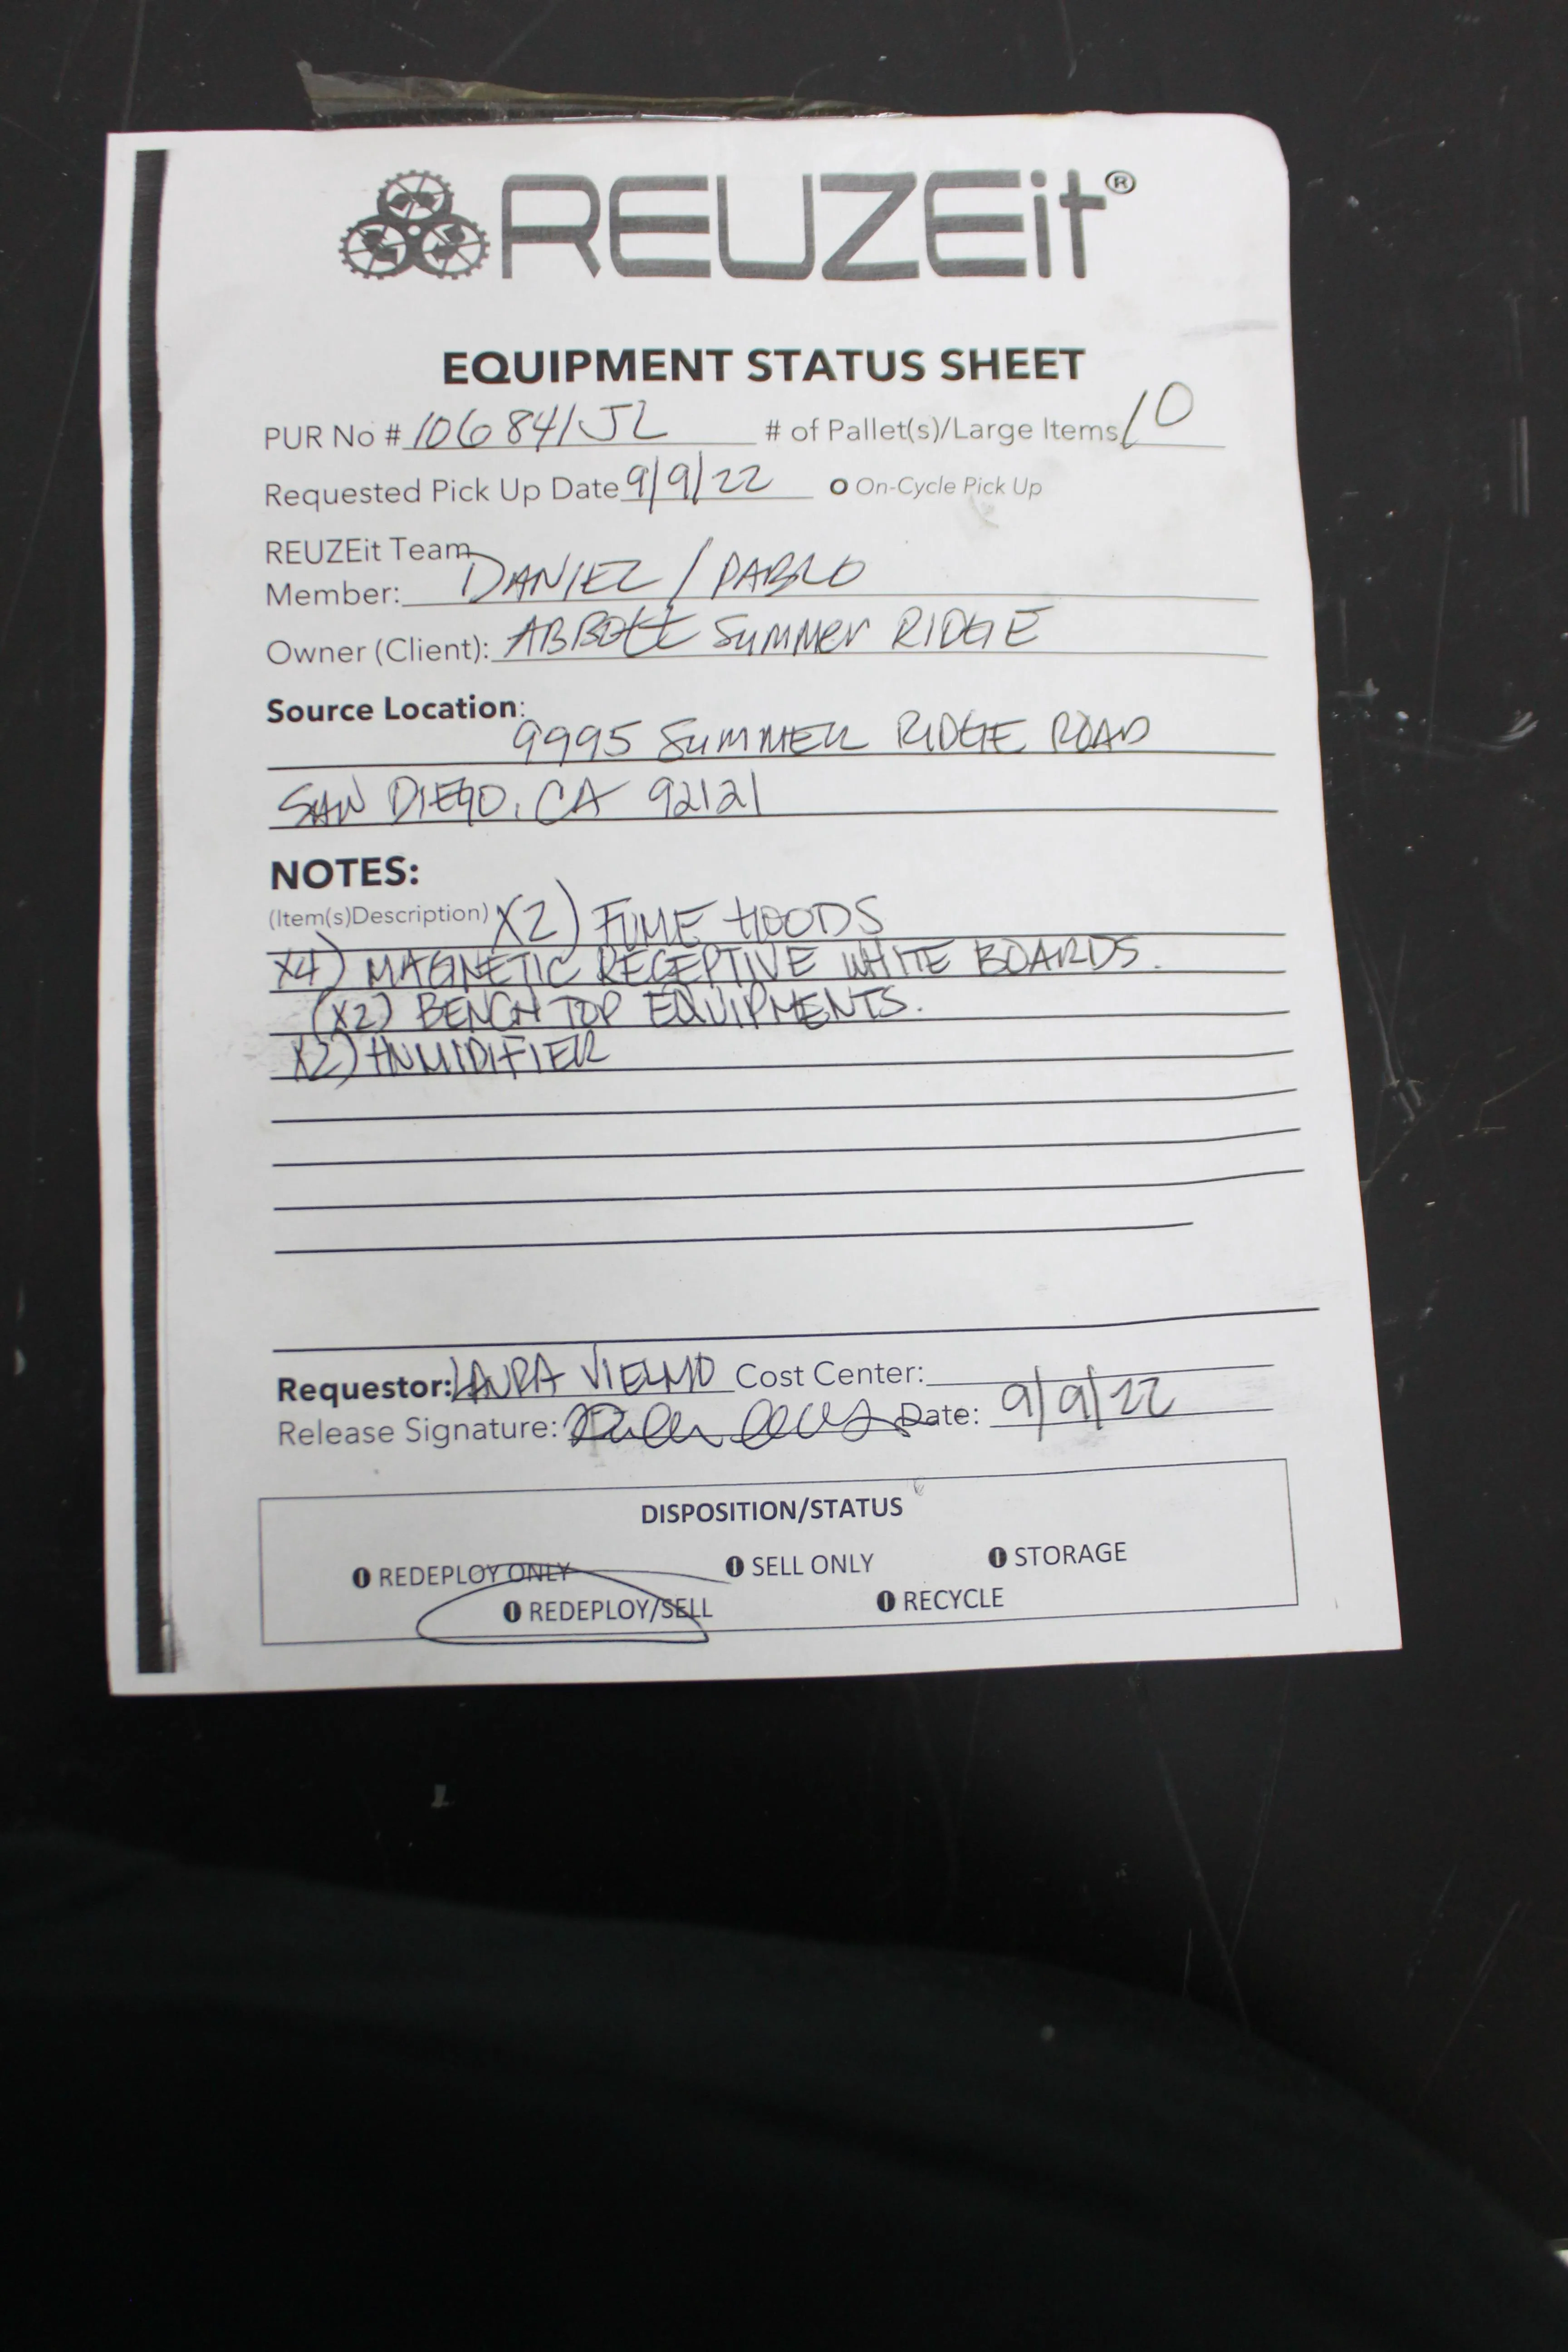 REUZEit®
EQUIPMENT STATUS SHEET
PUR No # 106841JL # of Pallet(s)/Large Items 10
Requested Pick Up Date 9/9/22 O On-Cycle Pick Up
REUZEit Team
Member: DANIEL / PABLO
Owner (Client): ABBOtt SUMMER RIDGE
Source Location:
9995 SUMMER RIDGE ROAD
SAN DIEGO, CA 92121
NOTES:
(Item(s)Description) X2) FUME HOODS
X4) MAGNETIC RECEPTIVE WHITE BOARDS.
(X2) BENCH TOP EQUIPMENTS.
X2) HUMIDIFIER
Requestor: LAURA VIELMO Cost Center:
Release Signature: Date: 9/9/22
DISPOSITION/STATUS
REDEPLOY ONLY SELL ONLY STORAGE
REDEPLOY/SELL RECYCLE